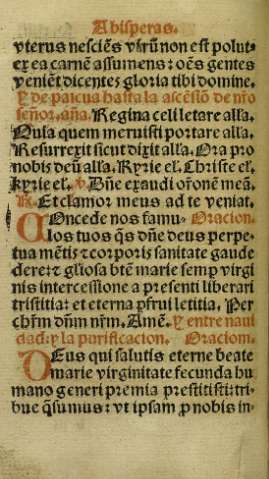 A bisperas.
vterus nesciẽs virũ non est polut⸗
ex ea carnẽ assumens: oẽs gentes
veniẽt dicentes gloria tibi domine.
Y de pascua hasta la ascẽsiõ de nr̃o
señor. aña. Regina celi letare alla.
Quia quem meruisti portare alla.
Resurrexit sicut dixit alla. Ora pro
nobis deũ alla. Kyrie el. Christe el.
kyrie el. v. Dñe exaudi orõnem meã.
R. Et clamor meus ad te veniat.
COncede nos famu⸗ Oracion.
los tuos q̃s dñe deus perpe⸗
tua mẽtis ⁊ corporis sanitate gaude
dere: ⁊ gl̃iosa btẽ marie semp virginis
intercessione a presenti liberari
tristitia: et eterna pfrui letitia. Per
chr̃m dñm nr̃m. Amẽ. Y entre naui
dad: y la purificacion. Oracion.
DEus qui salutis eterne beate
marie virginitate fecunda hu
mano generi premia prestitisti: tri⸗
bue q̃sumus: vt ipsam p nobis in⸗